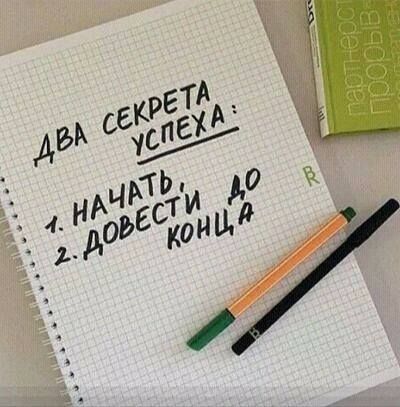 ДВА СЕКРЕТА
УСПЕХА:
1. НАЧАТЬ,
2. ДОВЕСТИ ДО
КОНЦА
BR
партнерст
прорыв